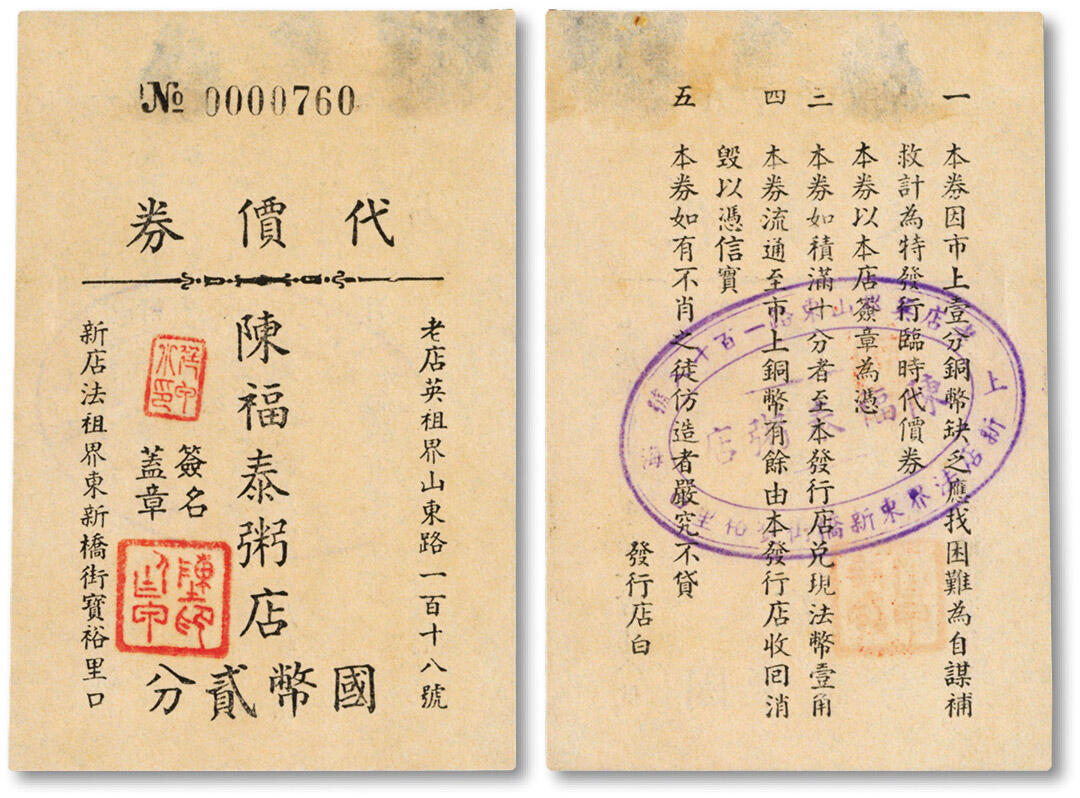 № 0000760
代價券
老店英租界山東路一百十八號
陳福泰粥店
簽名
蓋章
新店法租界東新橋街寶裕里口
國幣貳分
一 本券因市上壹分銅幣缺乏應找困難為自謀補
救計為特發行臨時代價券
本券以本店簽章為憑
三 本券如積滿十分者至本發行店兌現法幣壹角
四 本券流通至市上銅幣有餘由本發行店收回消
毀以憑信實
五 本券如有不肖之徒仿造者嚴究不貸
發行店白
上海
陳福泰粥店